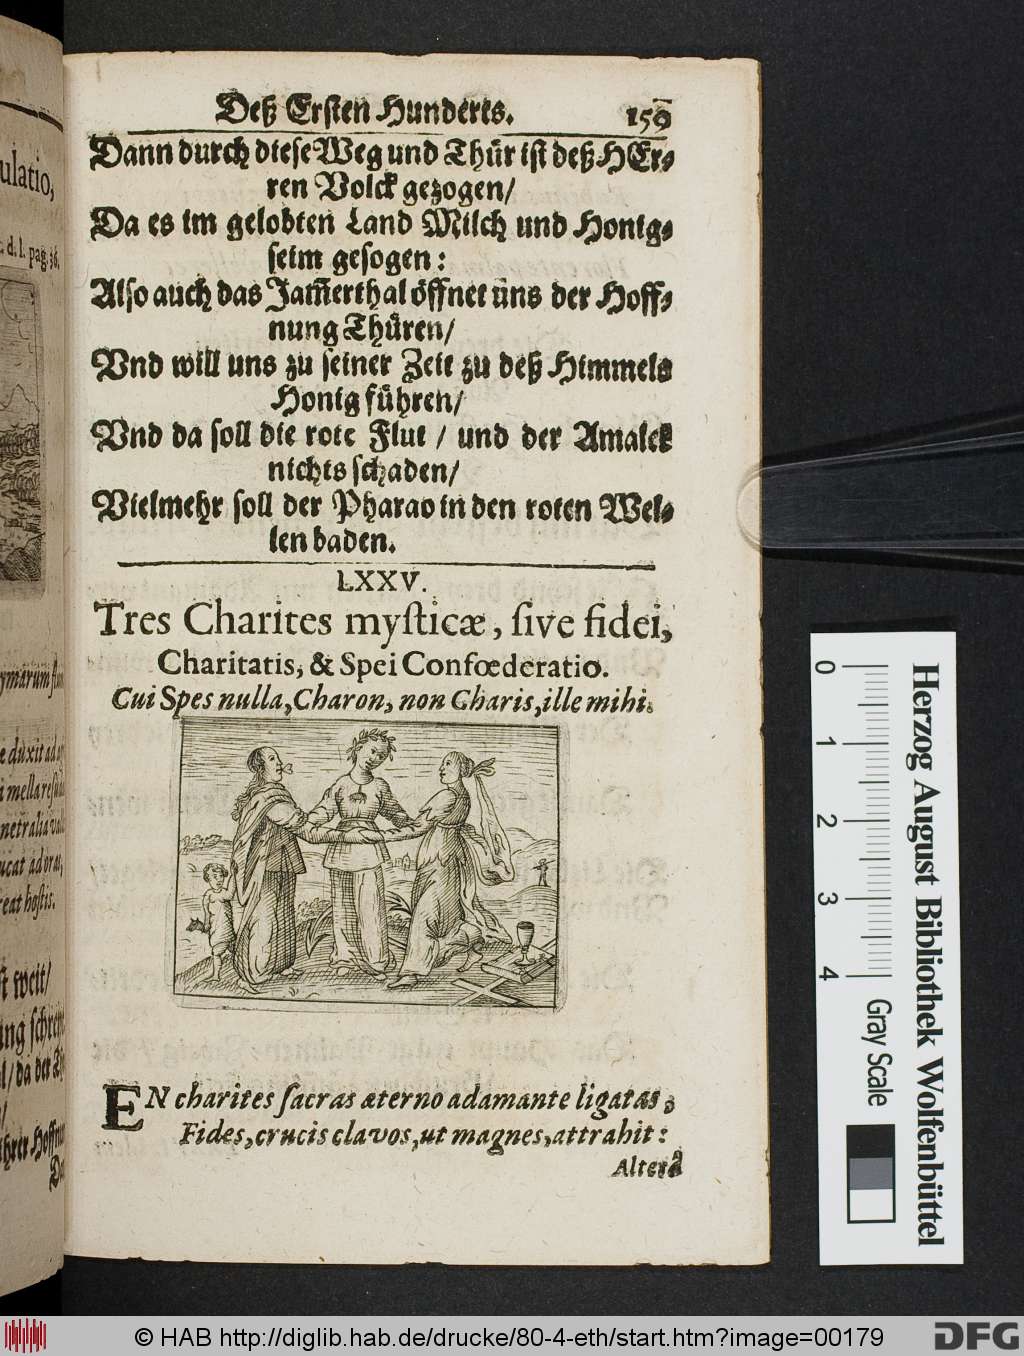 ulatio,
d. l. pag. 36.
Deß Ersten Hunderts. 159
Dann durch diese Weg und Thür ist deß HEr⸗
ren Volck gezogen/
Da es im gelobten Land Milch und Honig⸗
seim gesogen:
Also auch das Jam̃erthal öffnet uns der Hoff⸗
nung Thüren/
Vnd will uns zu seiner Zeit zu deß Himmels
Honig führen/
Vnd da soll die rote Flut / und der Amalek
nichts schaden/
Vielmehr soll der Pharao in den roten Wel⸗
len baden.
LXXV.
Tres Charites mysticæ, sive fidei,
Charitatis, & Spei Confœderatio.
Cui Spes nulla, Charon, non Charis, ille mihi.
EN charites sacras æterno adamante ligatas,
Fides, crucis clavos, ut magnes, attrahit:
Alterâ
ymarum
e duxit ad
i mella
netralia
ucat ad oras,
eat hostis.
st weit/
ung
l/da der
Da
0 1 2 3 4
Gray Scale
Herzog August Bibliothek Wolfenbüttel
© HAB http://diglib.hab.de/drucke/80-4-eth/start.htm?image=00179
DFG